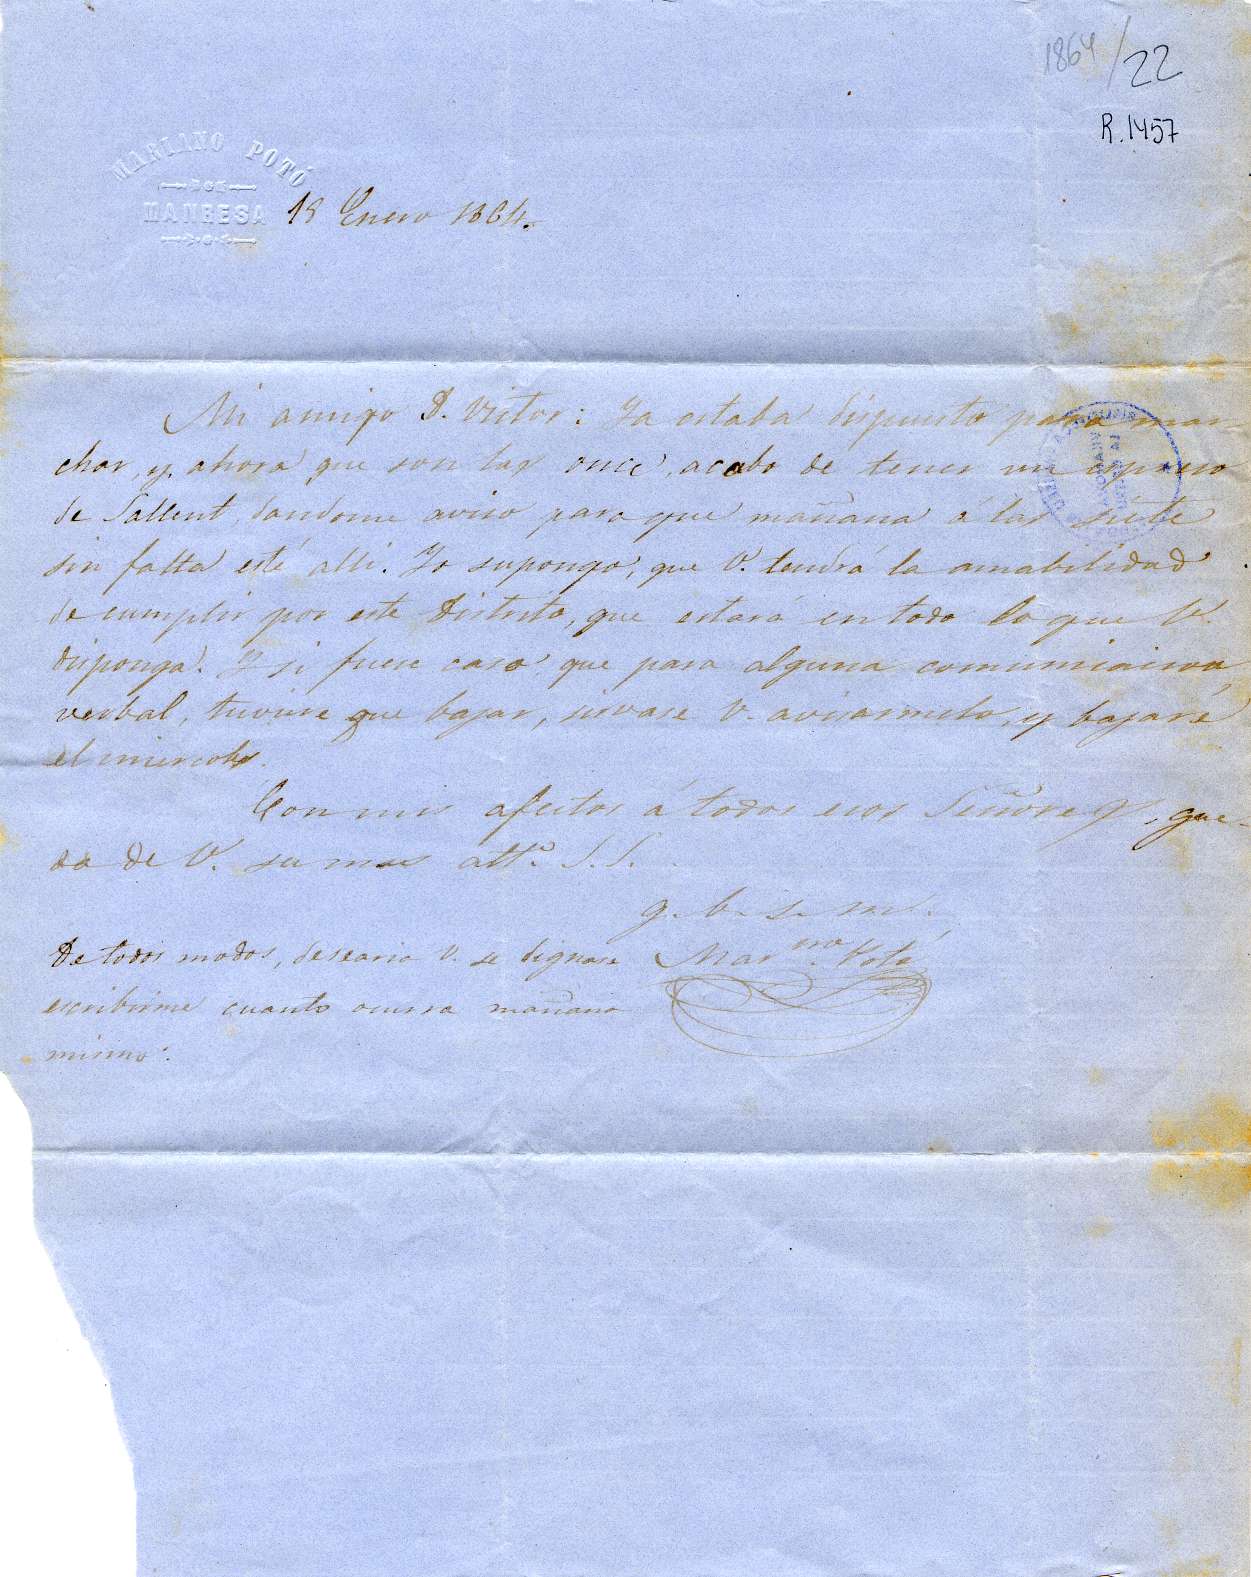 1864/22
R.1457
MARIANO POTÓ
MANRESA
18 Enero 1864.
Mi amigo D. Victor: Ya estaba dispuesto para mar-
char, y ahora que son las once, acabo de tener un espreso
de Sallent, dandome aviso para que mañana á las siete
sin falta esté alli. Yo supongo, que V. tendrá la amabilidad
de cumplir por este Distrito, que estará en todo lo que V.
disponga. Y si fuese caso que para alguna comunicacion
verbal, tuviese que bajar, sirvase V. avisarmelo, y bajaré
el miercoles.
Con mis afectos á todos esos Señores, que-
da de V. su mas att.º S. S.
q. b. s. m.
Mar.no Potó
De todos modos, desearia V. se dignase
escribirme cuanto ocurra mañana
mismo.